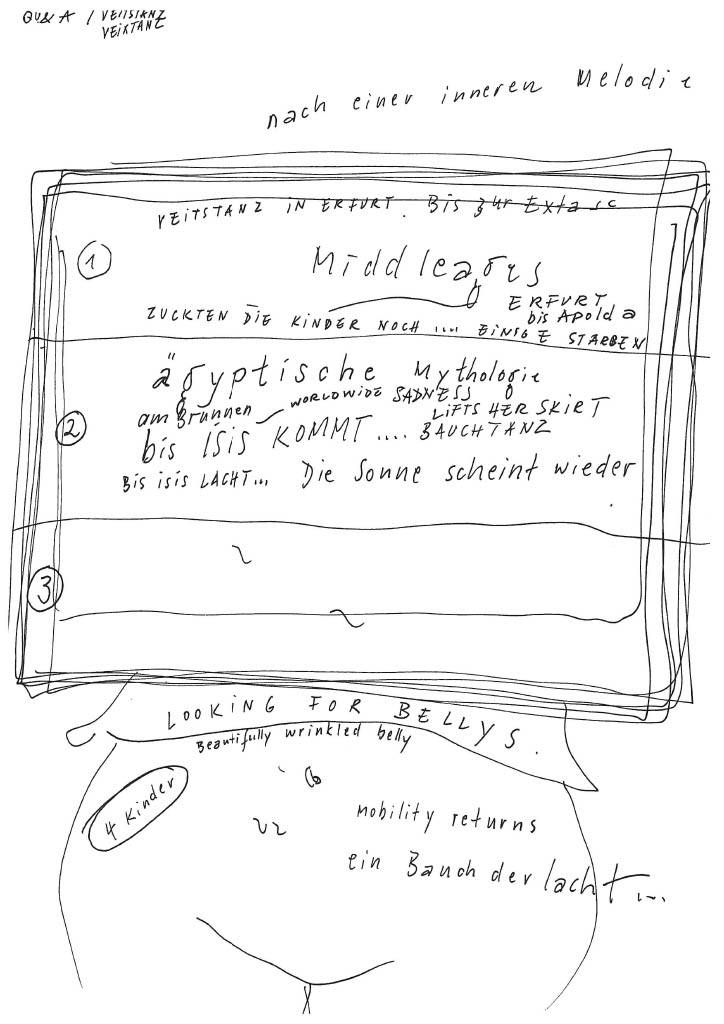 QU&A / VEITSTANZ
VEIXTANZ
nach einer inneren Melodie
VEITSTANZ IN ERFURT. Bis zur Extase
1
Middleages
ERFURT
bis Apolda
ZUCKTEN DIE KINDER NOCH .... EINIGE STARBEN
ägyptische Mythologie
am Brunnen WORLDWIDE SADNESS
LIFTS HER SKIRT
2
bis ISIS KOMMT .... BAUCHTANZ
BIS isis LACHT... Die Sonne scheint wieder
3
LOOKING FOR BELLYS.
Beautifully wrinkled belly
4 Kinder
mobility returns
ein Bauch der lacht...